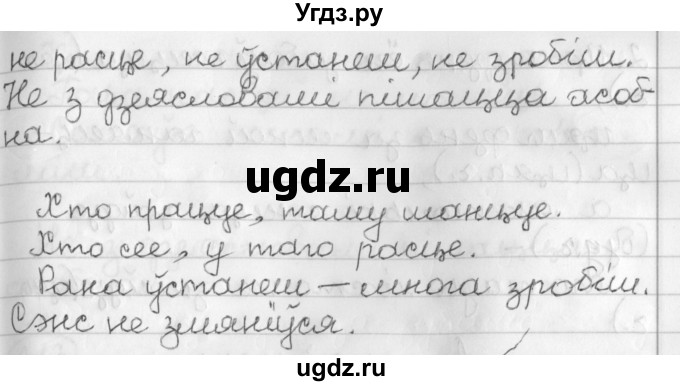 Угдз.ру
не расце, не ўстанеш, не зробіш.
Не з дзеясловамі пішацца асоб-
на.
ugdz.ru
Хто працуе, таму шанцуе.
Хто сее, у таго расце.
Рана ўстанеш – многа зробіш.
Сэнс не змяніўся.
ugdz.ru